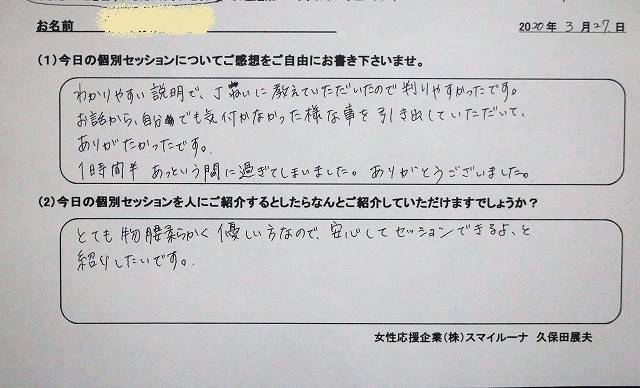 お名前
2020年3月27日
(1)今日の個別セッションについてご感想をご自由にお書き下さいませ。
わかりやすい説明で、丁ねいに教えていただいたので判りやすかったです。
お話から、自分でも気付かなかった様な事を引き出していただいて、
ありがたかったです。
1時間半あっという間に過ぎてしまいました。ありがとうございました。
(2)今日の個別セッションを人にご紹介するとしたらなんとご紹介していただけますでしょうか?
とても物腰柔らかく優しい方なので、安心してセッションできるよ、と
紹介したいです。
女性応援企業(株)スマイルーナ 久保田展夫